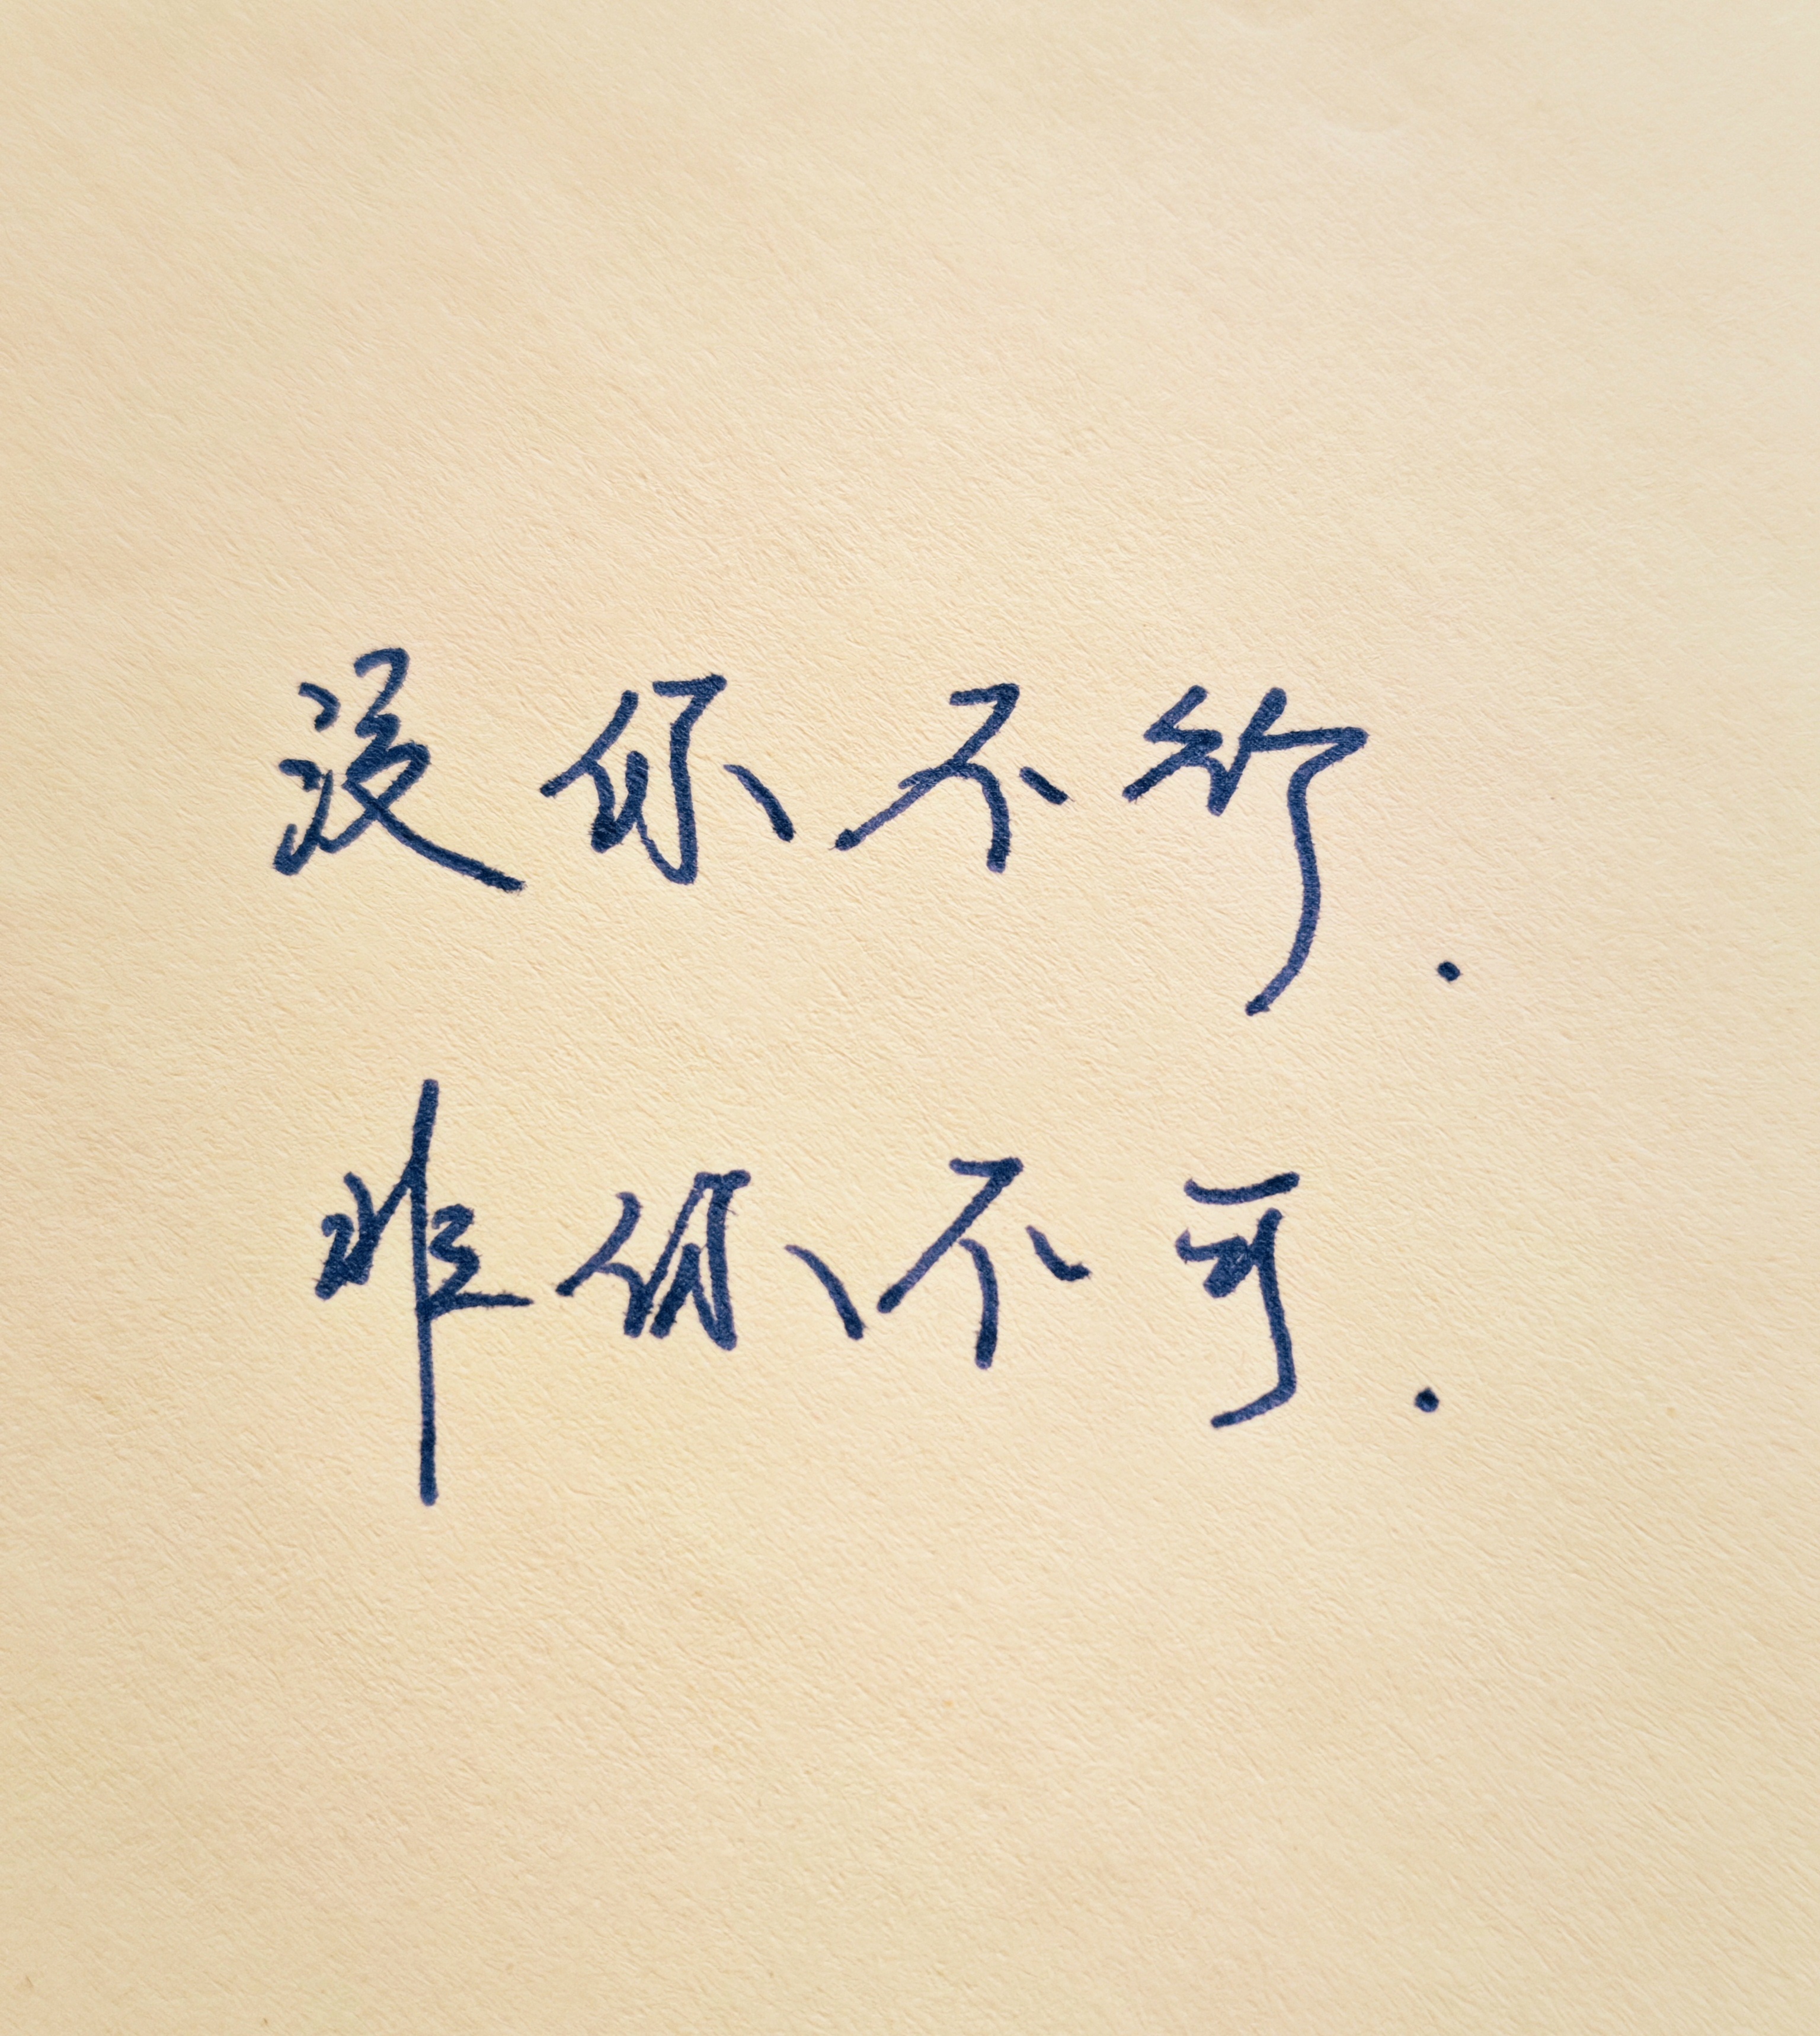 没你不行.
非你不可.